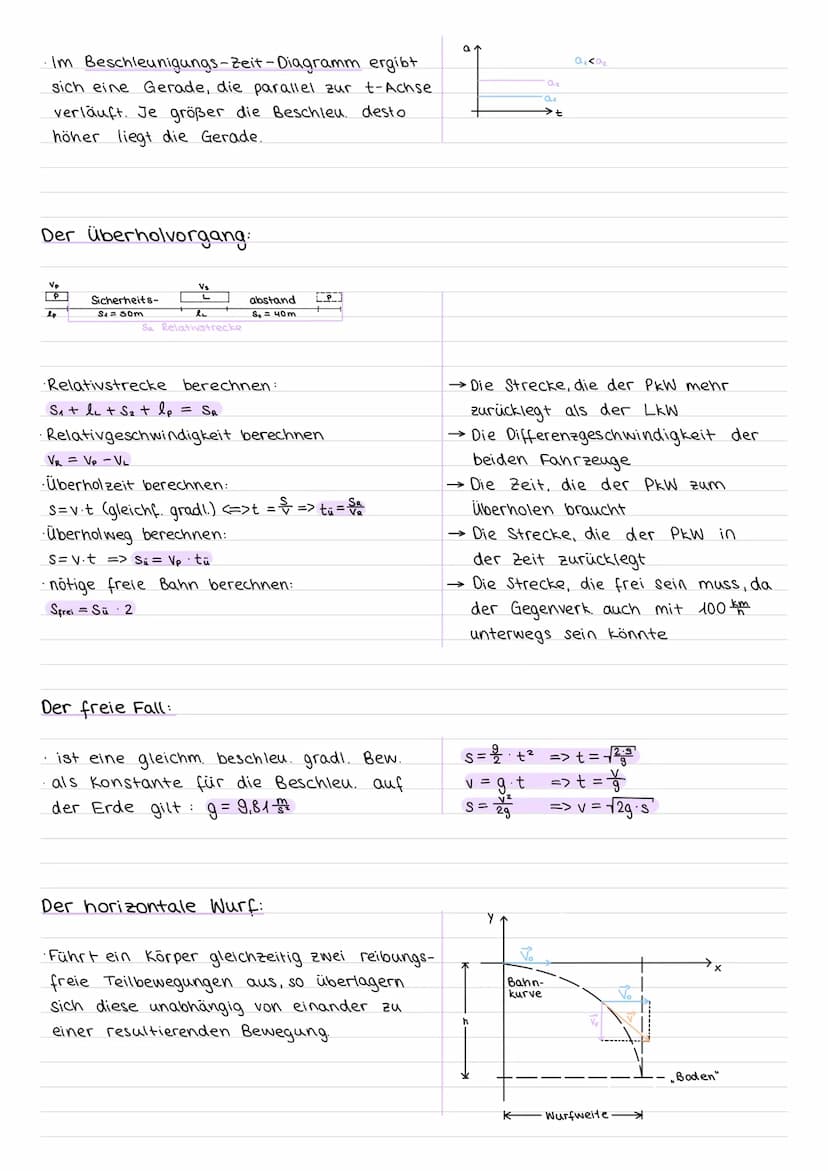 · Im Beschleunigungs-Zeit-Diagramm ergibt
sich eine Gerade, die parallel zur t-Achse
verläuft. Je größer die Beschleu. desto
höher liegt die Gerade.
a
a₁<a₂
a₂
a₁
t
Der Überholvorgang:
Vₚ
P
Sicherheits-
L
abstand
P
lₚ
S₁ = 50m
l_L
S₂ = 40m
S_R Relativstrecke
· Relativstrecke berechnen:
S₁ + l_L + S₂ + lₚ = S_R
· Relativgeschwindigkeit berechnen
V_R = Vₚ - V_L
· Überholzeit berechnen:
s=v·t (gleichf. gradl.) <=>t = s/v => tü = S_R/V_R
· Überholweg berechnen:
s=v·t => Sü = Vₚ · tü
· nötige freie Bahn berechnen:
S_frei = Sü · 2
→ Die Strecke, die der PkW mehr
zurücklegt als der LkW
→ Die Differenzgeschwindigkeit der
beiden Fahrzeuge
→ Die Zeit, die der PkW zum
Überholen braucht
→ Die Strecke, die der PkW in
der Zeit zurücklegt
→ Die Strecke, die frei sein muss, da
der Gegenverk. auch mit 100 km/h
unterwegs sein könnte
Der freie Fall:
· ist eine gleichm. beschleu. gradl. Bew.
· als Konstante für die Beschleu. auf
der Erde gilt : g = 9,81 m/s²
s = g/2 · t² => t = √(2·s/g)
v = g · t => t = v/g
s = v²/2g => v = √(2g·s)
Der horizontale Wurf:
· Führt ein Körper gleichzeitig zwei reibungs-
freie Teilbewegungen aus, so überlagern
sich diese unabhängig von einander zu
einer resultierenden Bewegung.
y
v⃗₀
x
Bahn-
kurve
v⃗₀
h
v⃗
„Boden"
Wurfweite